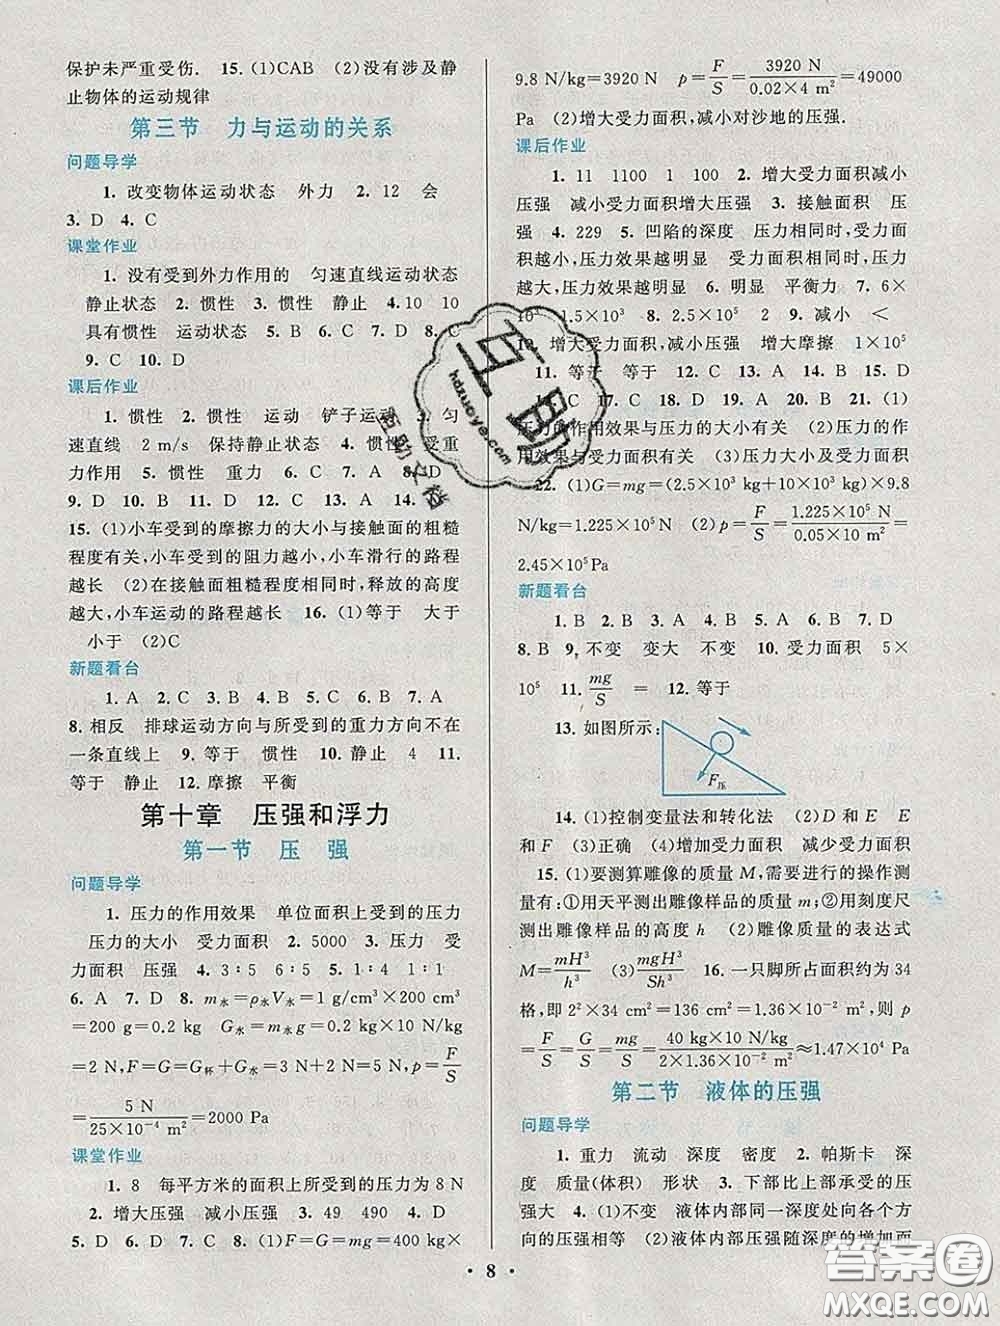 保护未严重受伤. 15. (1)CAB (2)没有涉及静
止物体的运动规律
第三节 力与运动的关系
问题导学
1. 改变物体运动状态 外力 2. 12 会
3. D 4. C
课堂作业
1. 没有受到外力作用的 匀速直线运动状态
静止状态 2. 惯性 3. 惯性 静止 4. 10 10
具有惯性 运动状态 5. B 6. C 7. D 8. C
9. C 10. D
课后作业
1. 惯性 2. 惯性 运动 铲子 运动 3. 匀
速直线 2 m/s 保持静止状态 4. 惯性 受重
力作用 5. 惯性 重力 6. C 7. A 8. D
9. D 10. D 11. D 12. B 13. A 14. B
15. (1)小车受到的摩擦力的大小与接触面的粗糙
程度有关,小车受到的阻力越小,小车滑行的路程
越长 (2)在接触面粗糙程度相同时,释放的高度
越大,小车运动的路程越长 16. (1)等于 大于
小于 (2)C
新题看台
1. A 2. C 3. B 4. B 5. C 6. B 7. A
8. 相反 排球运动方向与所受到的重力方向不在
一条直线上 9. 等于 惯性 10. 静止 4 11.
等于 静止 12. 摩擦 平衡
第十章 压强和浮力
第一节 压 强
问题导学
1. 压力的作用效果 单位面积上受到的压力
压力的大小 受力面积 2. 5000 3. 压力 受
力面积 压强 4. 3∶5 6∶5 5. 1∶4 1∶1
6. A 7. D 8. m水=ρ水V水=1 g/cm³×200 cm³
=200 g=0.2 kg G水=m水g=0.2 kg×10 N/kg
=2 N,F=G=G杯+G水=3 N+2 N=5 N p=F/S
=5 N/(25×10⁻⁴ m²)=2000 Pa
课堂作业
1. 8 每平方米的面积上所受到的压力为8 N
2. 增大压强 减小压强 3. 49 490 4. D
5. D 6. D 7. C 8. (1)F=G=mg=400 kg×
9.8 N/kg=3920 N p=F/S=3920 N/(0.02×4 m²)=49000
Pa (2)增大受力面积,减小对沙地的压强.
课后作业
1. 11 1100 1 100 2. 增大受力面积减小
压强 减小受力面积增大压强 3. 接触面积 压
强 4. 229 5. 凹陷的深度 压力相同时,受力面
积越小,压力效果越明显 受力面积相同时,压力
越大,压力效果越明显 6. 明显 平衡力 7. 6×
1.5×10³ 8. 2.5×10⁵ 2 9. 减小 <
10. 增大受力面积,减小压强 增大摩擦 1×10⁵
11. 等于 等于 12. C 13. C 14. B 15. D
C 17. C 18. B 19. D 20. A 21. B 21. (1)
压力的作用效果与压力的大小有关 (2)压力的作
用效果与受力面积有关 (3)压力大小及受力面积
22. (1)G=mg=(2.5×10³ kg+10×10³ kg)×9.8
N/kg=1.225×10⁵ N (2)p=F/S=1.225×10⁵ N/(0.05×10 m²)=
2.45×10⁵Pa
新题看台
1. B 2. B 3. A 4. B 5. A 6. B 7. D
8. B 9. 不变 变大 不变 10. 受力面积 5×
10⁵ 11. mg/S = 12. 等于
13. 如图所示:
F压
14. (1)控制变量法和转化法 (2)D 和 E E
和 F (3)正确 (4)增加受力面积 减少受力面积
15. (1)要测算雕像的质量 M,需要进行的操作测
量有:①用天平测出雕像样品的质量 m;②用刻度尺
测出雕像样品的高度 h (2)雕像质量的表达式
M=mH³/h³ (3)mgH³/Sh³ 16. 一只脚所占面积约为34
格,即2²×34 cm²=136 cm²=1.36×10⁻² m²,p=
F/S=G/S=mg/S=40 kg×10 N/kg/(2×1.36×10⁻² m²)≈1.47×10⁴ Pa
第二节 液体的压强
问题导学
1. 重力 流动 深度 密度 2. 帕斯卡 深
度 质量(体积) 形状 3. 下部比上部承受的压
强大 4. (1)不变 液体内部同一深度处向各个方
向的压强相等 (2)液体内部压强随深度的增加而
· 8 ·
互助
hdzuoye.com
答案圈
MXQE.COM